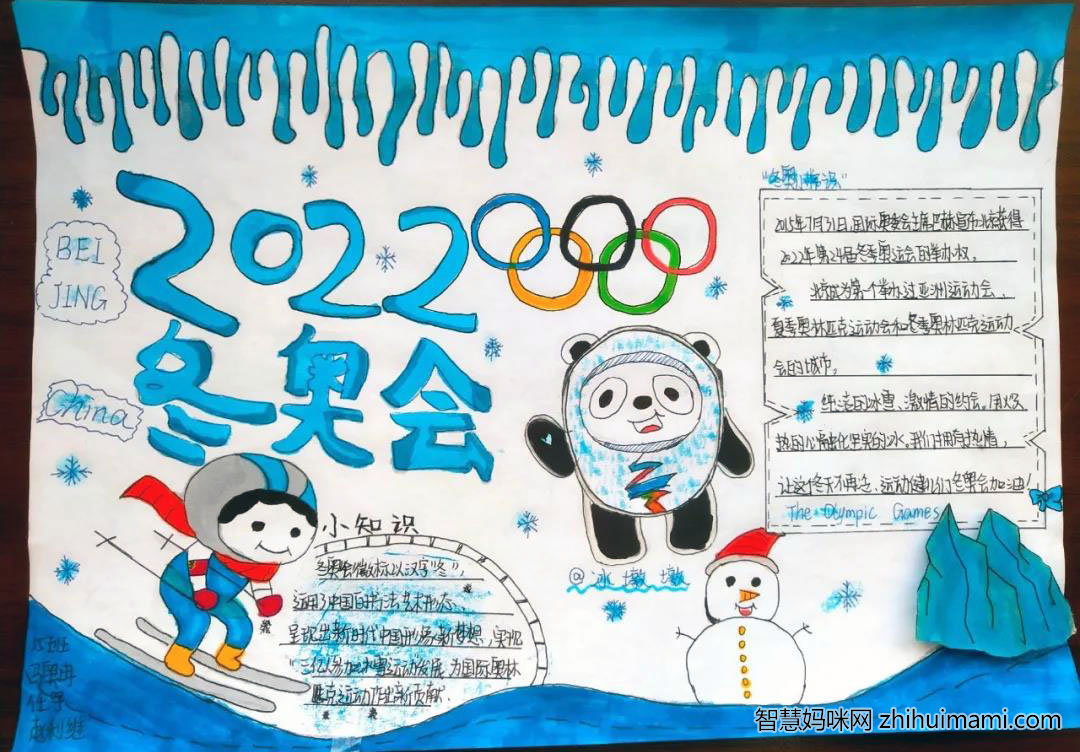 "冬奥小常识"
BEI
JING
2022
冬奥会
China
2015年7月31日,国际奥委会主席巴赫宣布北京获得
2022年第24届冬季奥运会的举办权。
北京成为第一个举办过亚洲运动会、
夏季奥林匹克运动会和冬季奥林匹克运动
会的城市。
纯洁的冰雪、激情的约会,用火
热的心融化坚果的冰。我们拥有热情,
让这个冬天不再冷、运动健儿们冬奥会加油!
The Olympic Games
@冰墩墩
小知识
冬奥会徽标以汉字"冬",
运用了中国书法艺术形态、
呈现出新时代中国形象、新梦想、实现
"三亿人参加冰雪运动"发展,为国际奥林
匹克运动作出新贡献.
15班
智慧妈咪网 zhihuimami.com